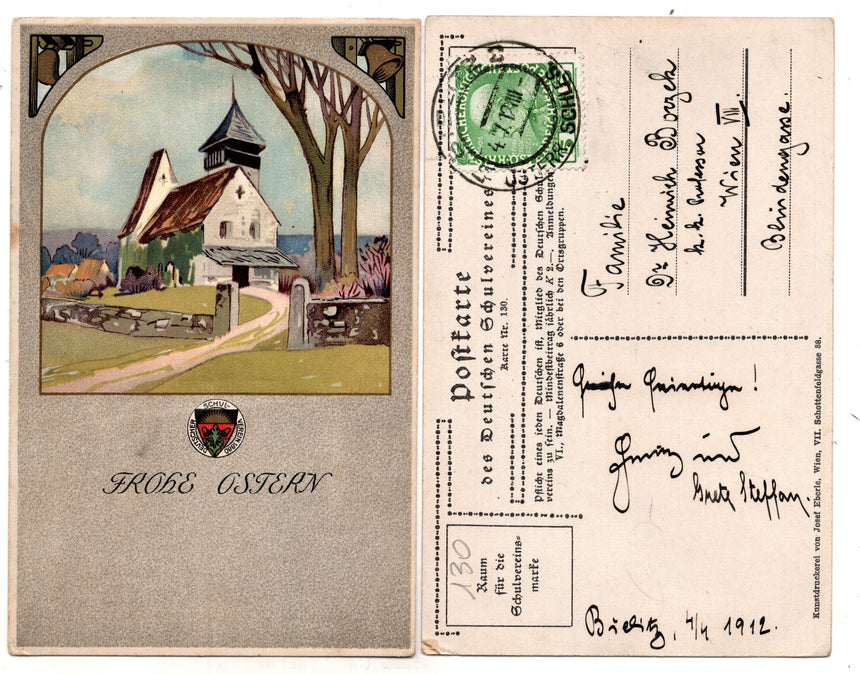 DEUTSCHER SCHUL-VEREIN 1880
FROHE OSTERN
Postkarte
des Deutschen Schulvereines
Karte Nr. 130.
Pflicht eines jeden Deutschen ist, Mitglied des Deutschen Schul-
vereins zu sein. — Mindestbeitrag jährlich K 2.—. Anmeldungen
VI., Magdalenenstraße 6 oder bei den Ortsgruppen.
130
Raum
für die
Schulvereins-
marke
Familie
Dr Heinrich
k. k. Professor
Wien VIII.
Blindengasse.
Feiertage!
und
Grete Steffan.
Bielitz, 4/4 1912.
Kunstdruckerei von Josef Eberle, Wien, VII. Schottenfeldgasse 38.